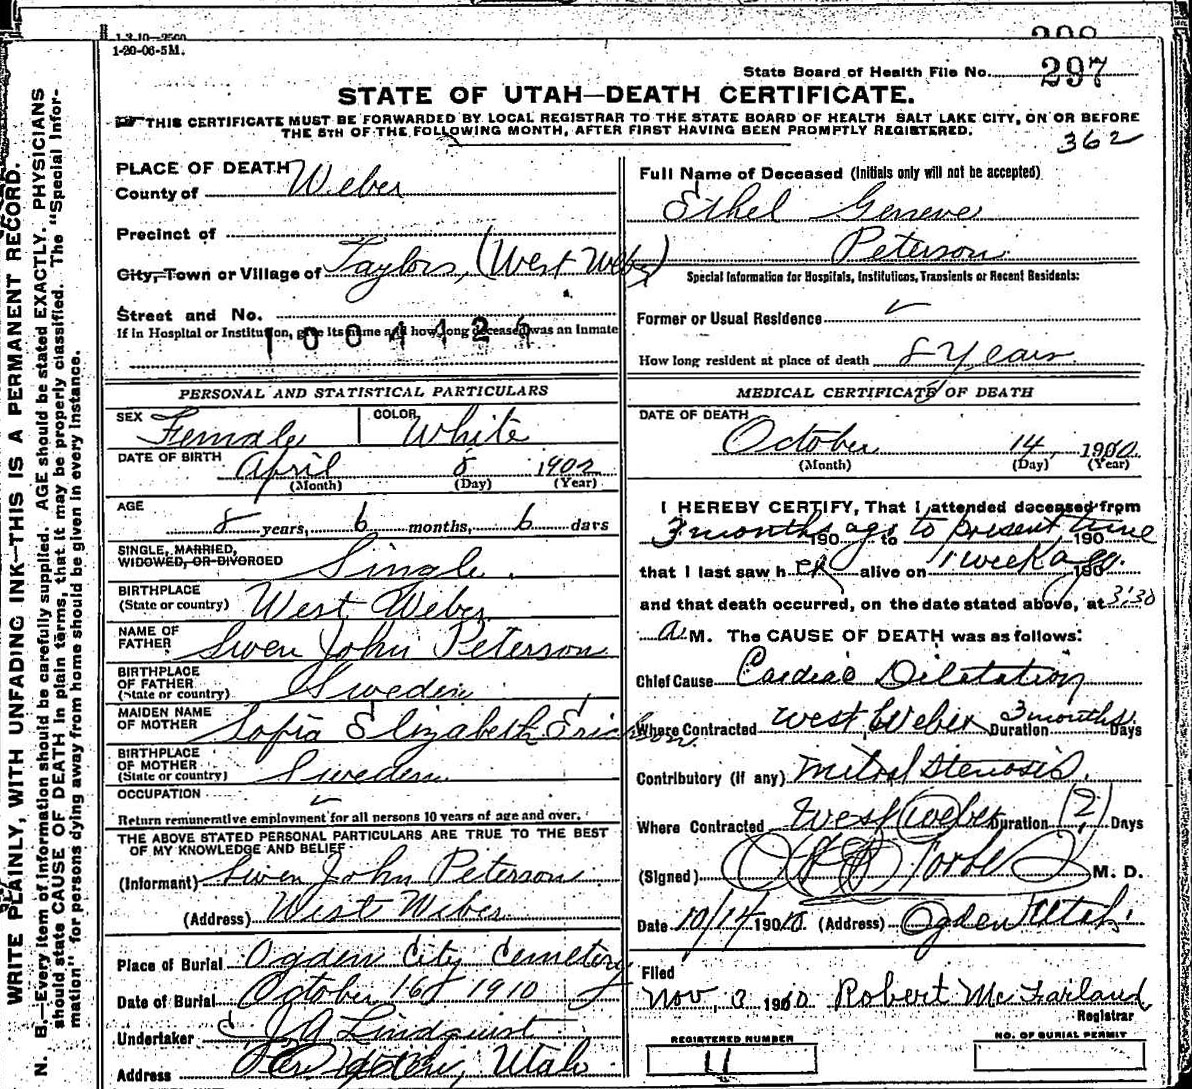 1-20-06-5M.
298
State Board of Health File No. 297
STATE OF UTAH—DEATH CERTIFICATE.
THIS CERTIFICATE MUST BE FORWARDED BY LOCAL REGISTRAR TO THE STATE BOARD OF HEALTH SALT LAKE CITY, ON OR BEFORE
THE 5TH OF THE FOLLOWING MONTH, AFTER FIRST HAVING BEEN PROMPTLY REGISTERED.
362
WRITE PLAINLY, WITH UNFADING INK—THIS IS A PERMANENT RECORD.
N. B.—Every item of information should be carefully supplied. AGE should be stated EXACTLY. PHYSICIANS
should state CAUSE OF DEATH in plain terms, that it may be properly classified. The "Special Infor-
mation" for persons dying away from home should be given in every instance.
PLACE OF DEATH
County of Weber
Precinct of
City, Town or Village of Taylors, (West Weber)
Street and No.
If in Hospital or Institution, give its name and how long deceased was an Inmate
PERSONAL AND STATISTICAL PARTICULARS
SEX Female COLOR White
DATE OF BIRTH April 8 1902
(Month) (Day) (Year)
AGE
8 years, 6 months, 6 days
SINGLE, MARRIED,
WIDOWED, OR DIVORCED Single.
BIRTHPLACE
(State or country) West Weber
NAME OF
FATHER Swen John Peterson
BIRTHPLACE
OF FATHER
(State or country) Sweden
MAIDEN NAME
OF MOTHER Sofia Elizabeth Erickson
BIRTHPLACE
OF MOTHER
(State or country) Sweden
OCCUPATION
Return remunerative employment for all persons 10 years of age and over.
THE ABOVE STATED PERSONAL PARTICULARS ARE TRUE TO THE BEST
OF MY KNOWLEDGE AND BELIEF
(Informant) Swen John Peterson
(Address) West Weber
Place of Burial Ogden City Cemetery
Date of Burial October 16 1910
Undertaker Lindquist
Address Ogden, Utah
Full Name of Deceased (Initials only will not be accepted)
Ethel Geneve
Peterson
Special Information for Hospitals, Institutions, Transients or Recent Residents:
Former or Usual Residence
How long resident at place of death 8 Years
MEDICAL CERTIFICATE OF DEATH
DATE OF DEATH
October 14, 1910
(Month) (Day) (Year)
I HEREBY CERTIFY, That I attended deceased from
3 months ago 190 to to present time 190
that I last saw her alive on 1 week ago 190
and that death occurred, on the date stated above, at 3:30
A.M. The CAUSE OF DEATH was as follows:
Chief Cause Cardiac Dilatation
Where Contracted West Weber Duration 3 months Days
Contributory (if any) Mitral Stenosis.
Where Contracted West Weber Duration (?) Days
(Signed) M. D.
Date 10/14 1910. (Address) Ogden Utah.
Filed
Nov, 3 1910. Robert McFarland
Registrar
REGISTERED NUMBER
11
NO. OF BURIAL PERMIT